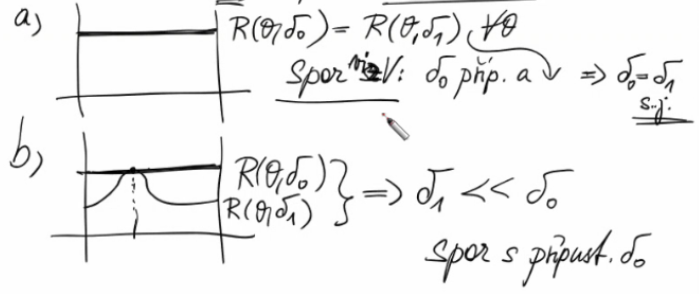 a) R(θ,δ₀) = R(θ,δ₁), ∀θ
Spor V: δ₀ příp. a ⇒ δ₀=δ₁
s.j.
b) R(θ,δ₀)
R(θ,δ₁) } ⇒ δ₁ << δ₀
spor s přípust. δ₀